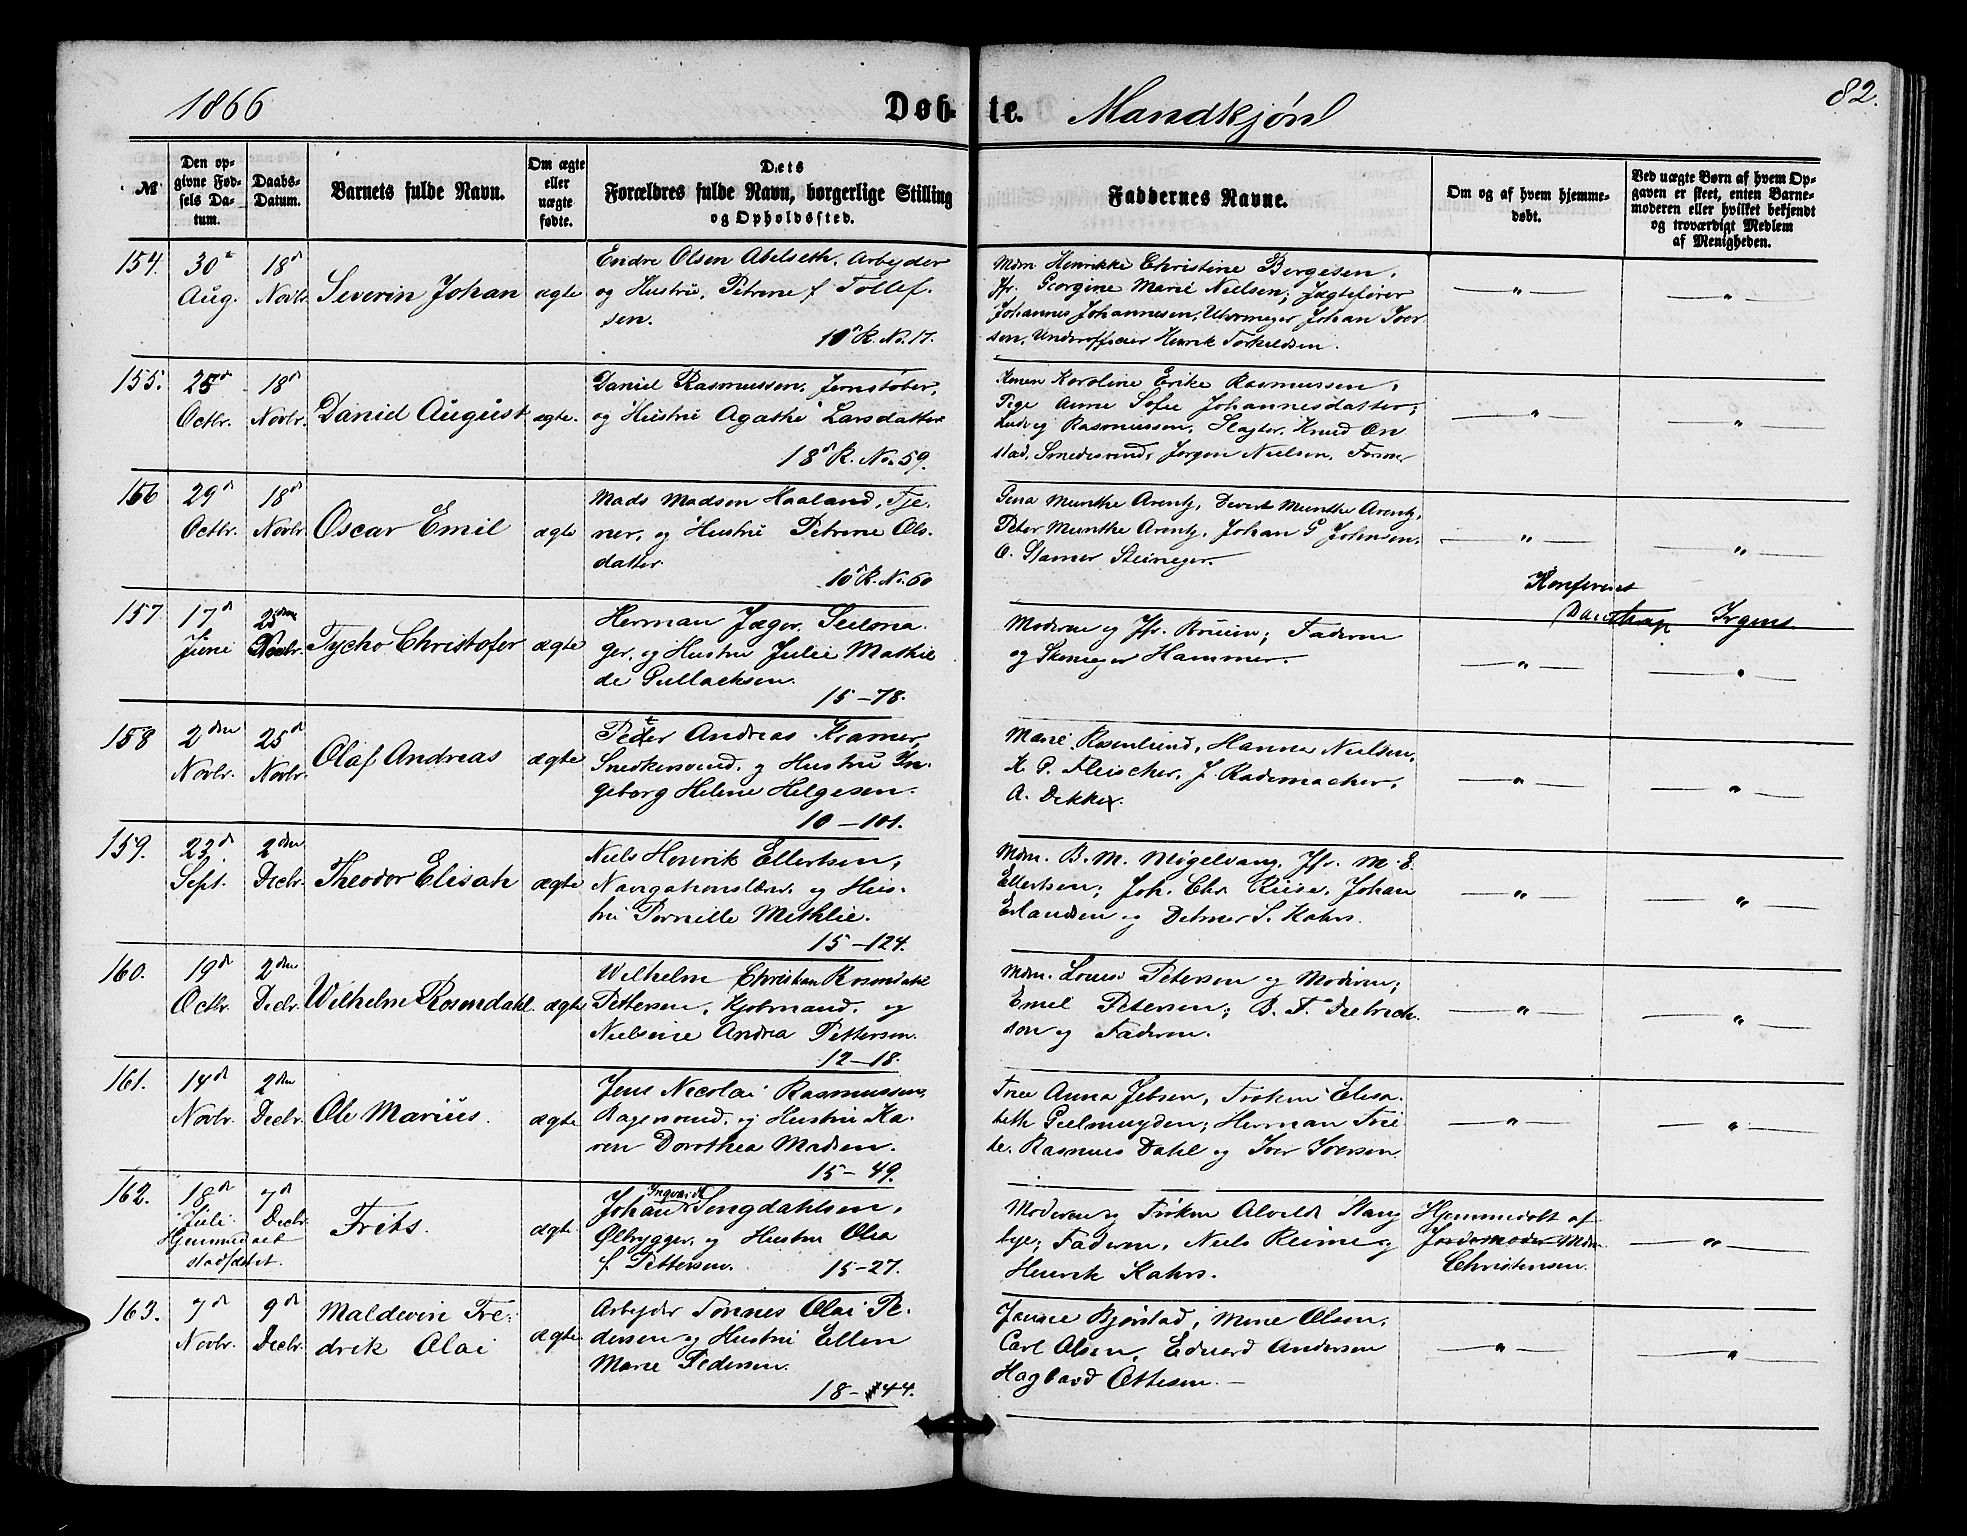 1866 Døb- te. Mandkjøn 82.
No
Den op-
givne Fød-
sels Da-
tum.
Daabs-
Datum.
Barnets fulde Navn.
Om ægte
eller
uægte
fødte.
Dets
Forældres fulde Navn, borgerlige Stilling
og Opholdssted.
Faddernes Navne.
Om og af hvem hjemme-
døbt.
Ved uægte Børn af hvem Op-
gaven er skeet, enten Barne-
moderen eller hvilket bekjendt
og troværdigt Medlem
af Menigheden.
154. 30te Aug. 18de Novbr. Severin Johan ægte
Endre Olsen Abelseth, Arbeyder
og Hustru, Petrine f. Tollef-
sen.
10de R. No. 17.
Mdm. Henrikke Christine Børgesen,
Jfr. Georgine Marie Nielsen; Jægtefører
Johannes Johannesen, Uhrmager Johan Iver-
sen, Underofficier Henrik Torkeldsen.
155. 25de Octbr. 18de Novbr. Daniel August ægte.
Daniel Rasmussen, Jernstøber,
og Hustru Agathe Larsdatter
18de R. No. 59.
Konen Karoline Erike Rasmussen,
Pige Anne Sofie Johannesdatter;
Ludvig Rasmussen, Slagter, Knud On
stad, Smedesvend, Jørgen Nielsen, Former
156 29de Octbr. 18de Novbr. Oscar Emil ægte
Mads Madsen Haaland, Tje-
ner, og Hustru Petrine Ols-
datter
10de R. No. 60
Gina Munthe Arentz, Divert Munthe Arentz,
Peter Munthe Arentz, Johan G Johnsen,
O. Stamer Steineger.
157 17de Juni 25den Novbr. Tycho Christofer ægte
Herman Jæger, Seilma-
ger, og Hustru Julie Mathil
de Gullachsen.
15-78.
Moderen og Jfr. Bruun; Faderen
og Skomager Hammer.
Konfereret
Daastrup Irgens
158 2den Novbr. 25de Novbr. Olaf Andreas ægte
Peter Andreas Kramer,
Snedkersvend, og Hustru In-
geborg Helene Helgesen.
10-101.
Marie Rosenlund, Hanna Nielsen,
K P. Fleischer, J. Rademacher,
A. Dekke.
159. 23de Sept. 2den Decbr. Theodor Elisah ægte
Niels Henrik Ellertsen,
Navigationslærer og Hus-
tru Pernille Methlie.
15-124.
Mdm. B. M. Møgelvang, Jfr. M. E.
Ellertsen; Joh. Chr. Riise, Johan
Erlandsen og Detmer S. Kahrs.
160. 19de Octbr. 2den Decbr. Wilhelm Rosendahl ægte
Wilhelm Christian Rosendahl
Pettersen, Kjøbmand, og
Nielsine Andrea Pettersen.
12-18.
Mdm. Louise Petersen og Moderen;
Emil Petersen; B. F. Diedrich-
son og Faderen.
161. 14de Novbr. 2den Decbr. Ole Marius. ægte
Jens Nicolai Rasmussen,
Bagersvend, og Hustru Ka-
ren Dorothea Madsen.
15-49.
Frue Anna Jebsen, Frøken Elisa-
beth Geelmuyden; Herman Frie-
le, Rasmus Dahl og Iver Iversen
162. 18de Juli. 7de Decbr. Frits. ægte
Hjemmedaab
stadfæstet.
Johan Ingvardt Songdahlsen,
Ølbrygger, og Hustru Olea
f. Pettersen. 15-27.
Moderen og Frøken Alvilde Stang
bye; Faderen, Niels Reime og
Henrik Kahrs.
Hjemmedøbt af
Jordemoder Mdm
Christensen.
163. 7de Novbr. 9de Decbr. Maldevin Fre-
drik Olai ægte
Arbeyder Tønnes Olai Pe-
dersen og Hustru Ellen
Marie Pedersen.
18-44.
Janne Bjørstad, Mine Olsen,
Carl Olsen, Eduard Andersen
Hagbard Ottesen.